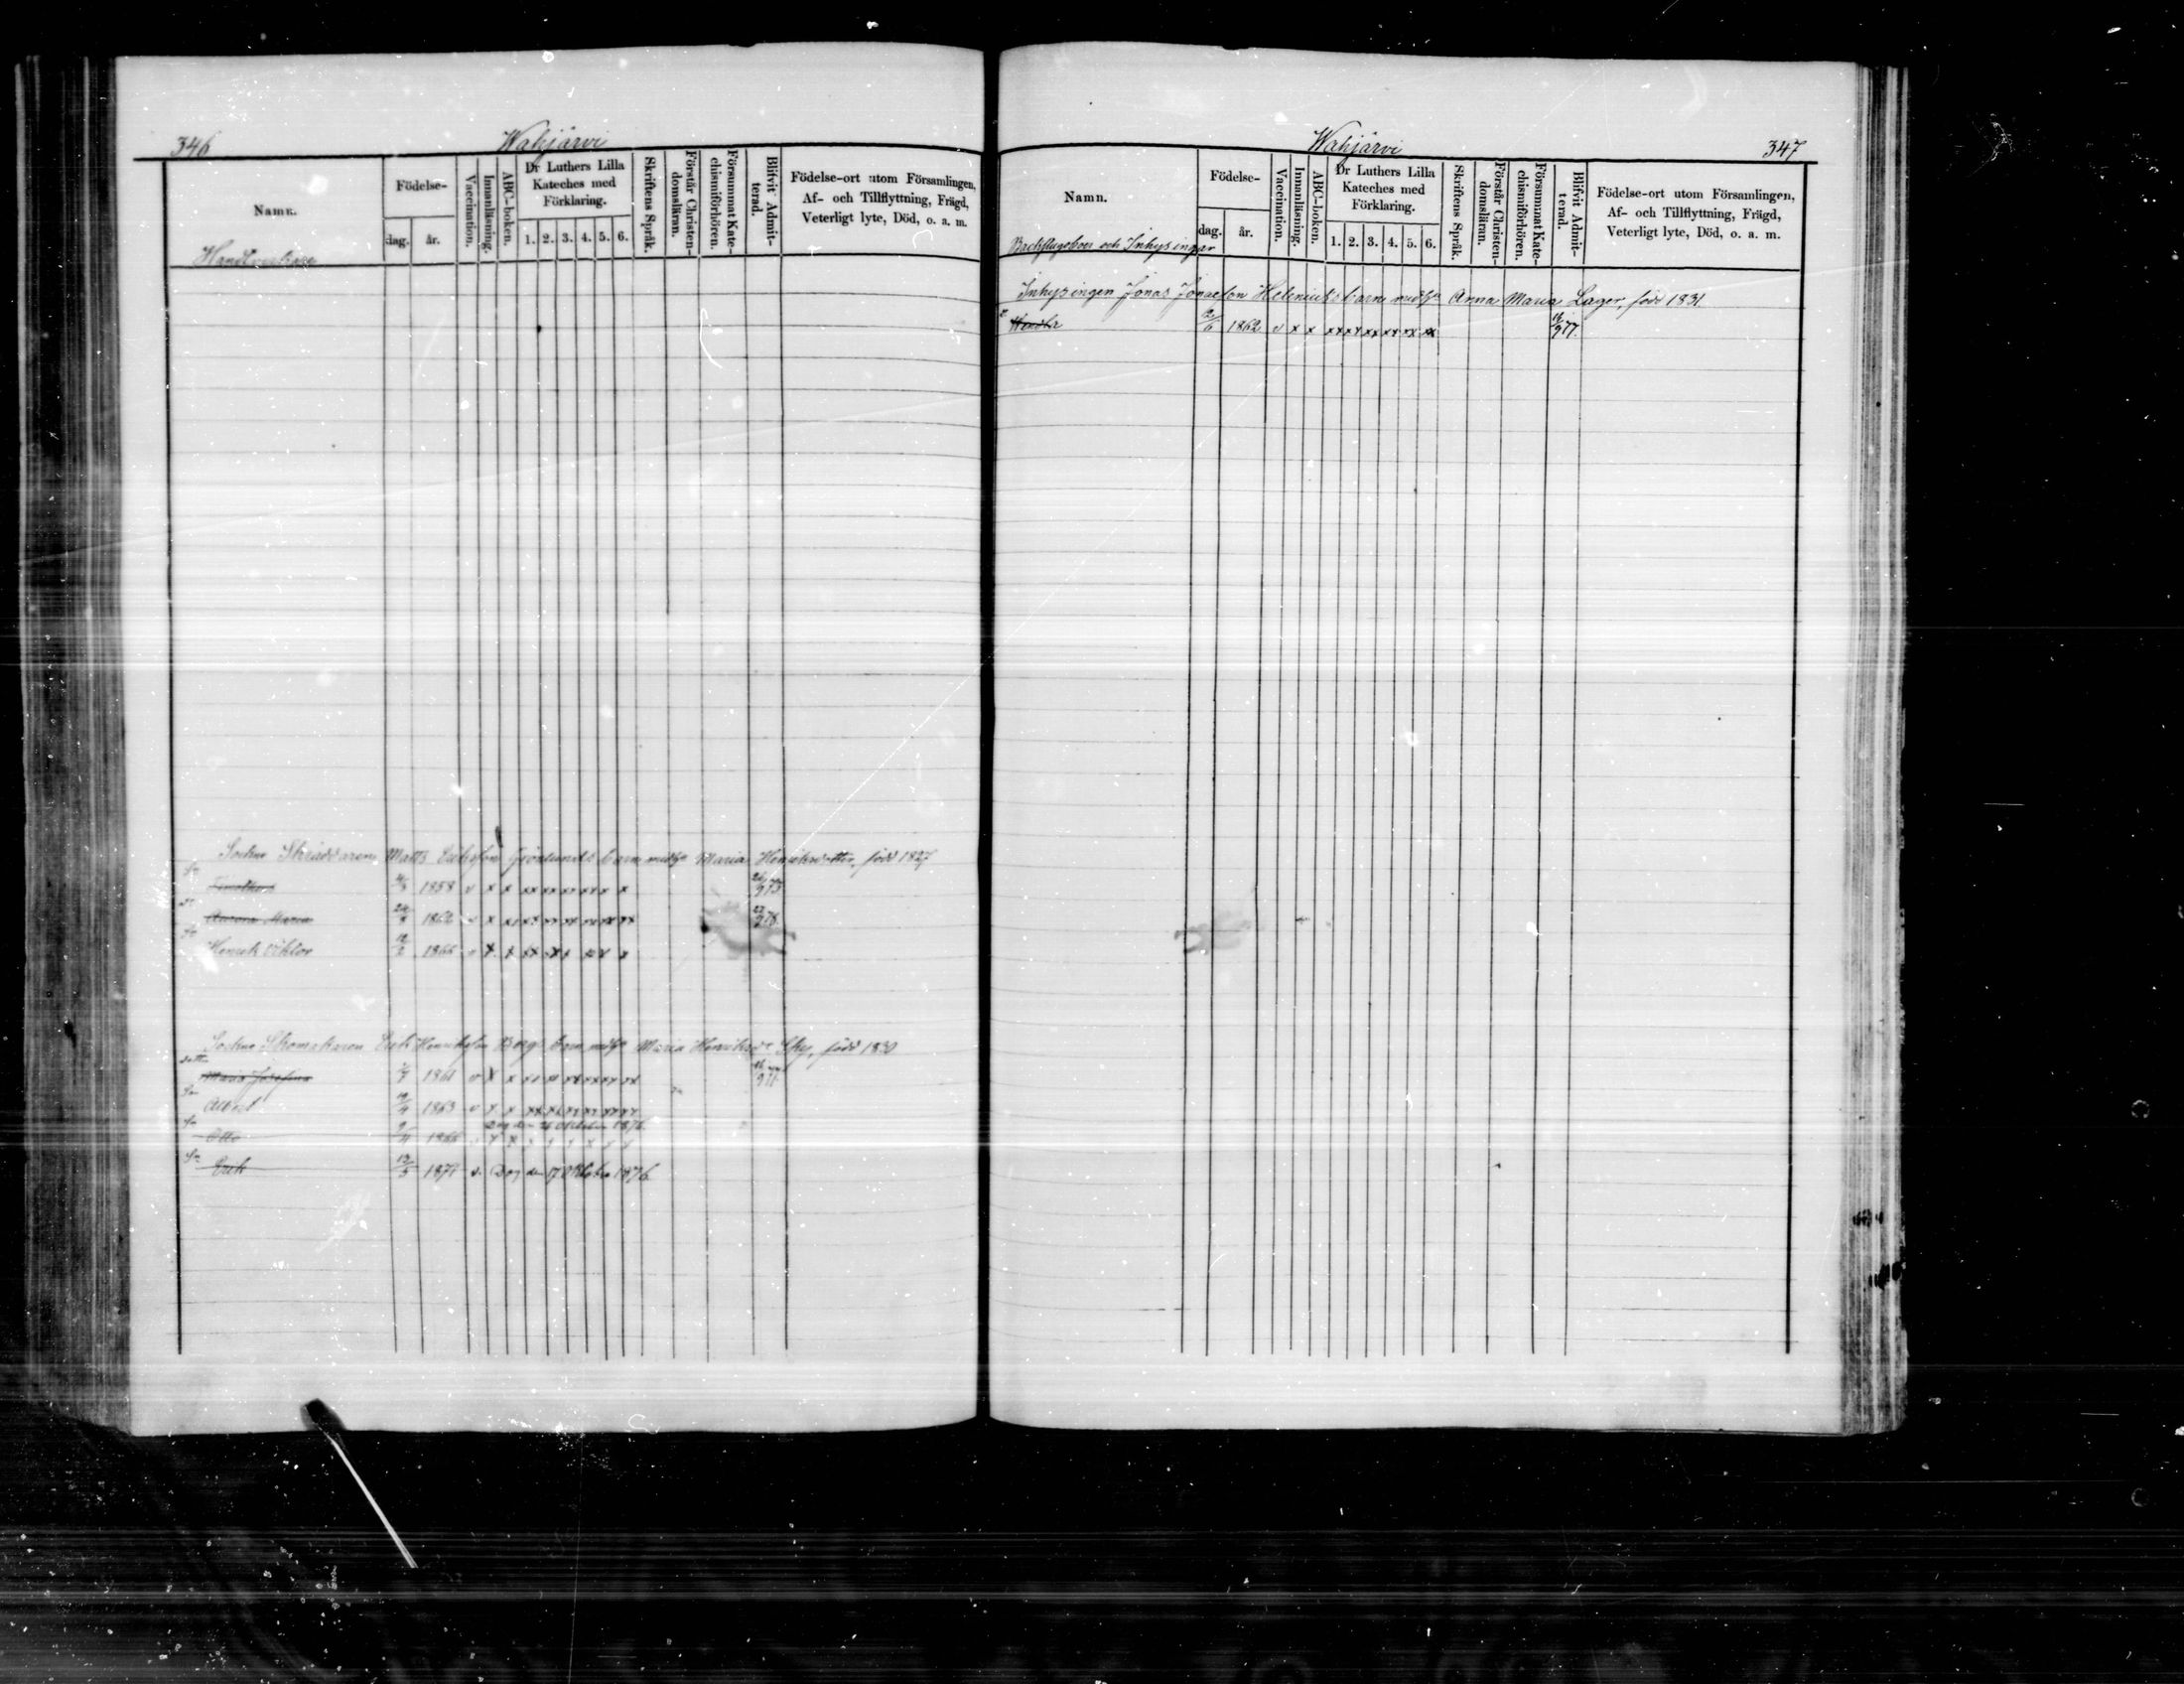 346 Wahjärvi
Namn. Födelse- dag. år. Vaccination. Innanläsning. ABC-boken. Dr Luthers Lilla Kateches med Förklaring. 1. 2. 3. 4. 5. 6. Skriftens Språk. Förstår Christendomsläran. Försummat Katechismiförhören. Blifvit Admitterad. Födelse-ort utom Församlingen, Af- och Tillflyttning, Frägd, Veterligt lyte, Död, o. a. m.
Handtverkare
Sockne Skräddaren Matts Eriksson Grönlunds barn med Maria Henriksdotter, född 1827
Sn 1858 v x x xx xx xx xx x x 9 75
Dr Aurora Maria 1862 v x x x xx xx xx xx xx 22 9 76
Sn Henrik Viktor 1866 v x x xx xx xx x
Sockne Skomakaren Erik Henriksson Bergs barn med Maria Henriksdr Sky, född 1830
dotter Maria Josefina 1861 v x x xx xx xx xx xx xx 9 77
Sn Albert 1863 v x x xx xx xx xx xx xx
Dog den 26 Oktober 1876.
Sn Otto 9/11 1866 v x x x x x x x x
Sn Erik 13/3 1871 v. Dog den 17 Oktober 1876
Wahjärvi 347
Namn. Födelse- dag. år. Vaccination. Innanläsning. ABC-boken. Dr Luthers Lilla Kateches med Förklaring. 1. 2. 3. 4. 5. 6. Skriftens Språk. Förstår Christendomsläran. Försummat Katechismiförhören. Blifvit Admitterad. Födelse-ort utom Församlingen, Af- och Tillflyttning, Frägd, Veterligt lyte, Död, o. a. m.
Backstugeboer och Inhysingar
Inhysingen Jonas Jonasson Helenius barn med Anna Maria Lager, född 1831.
2/6 1862 v x x xx xx xx xx xx xx 9 77.